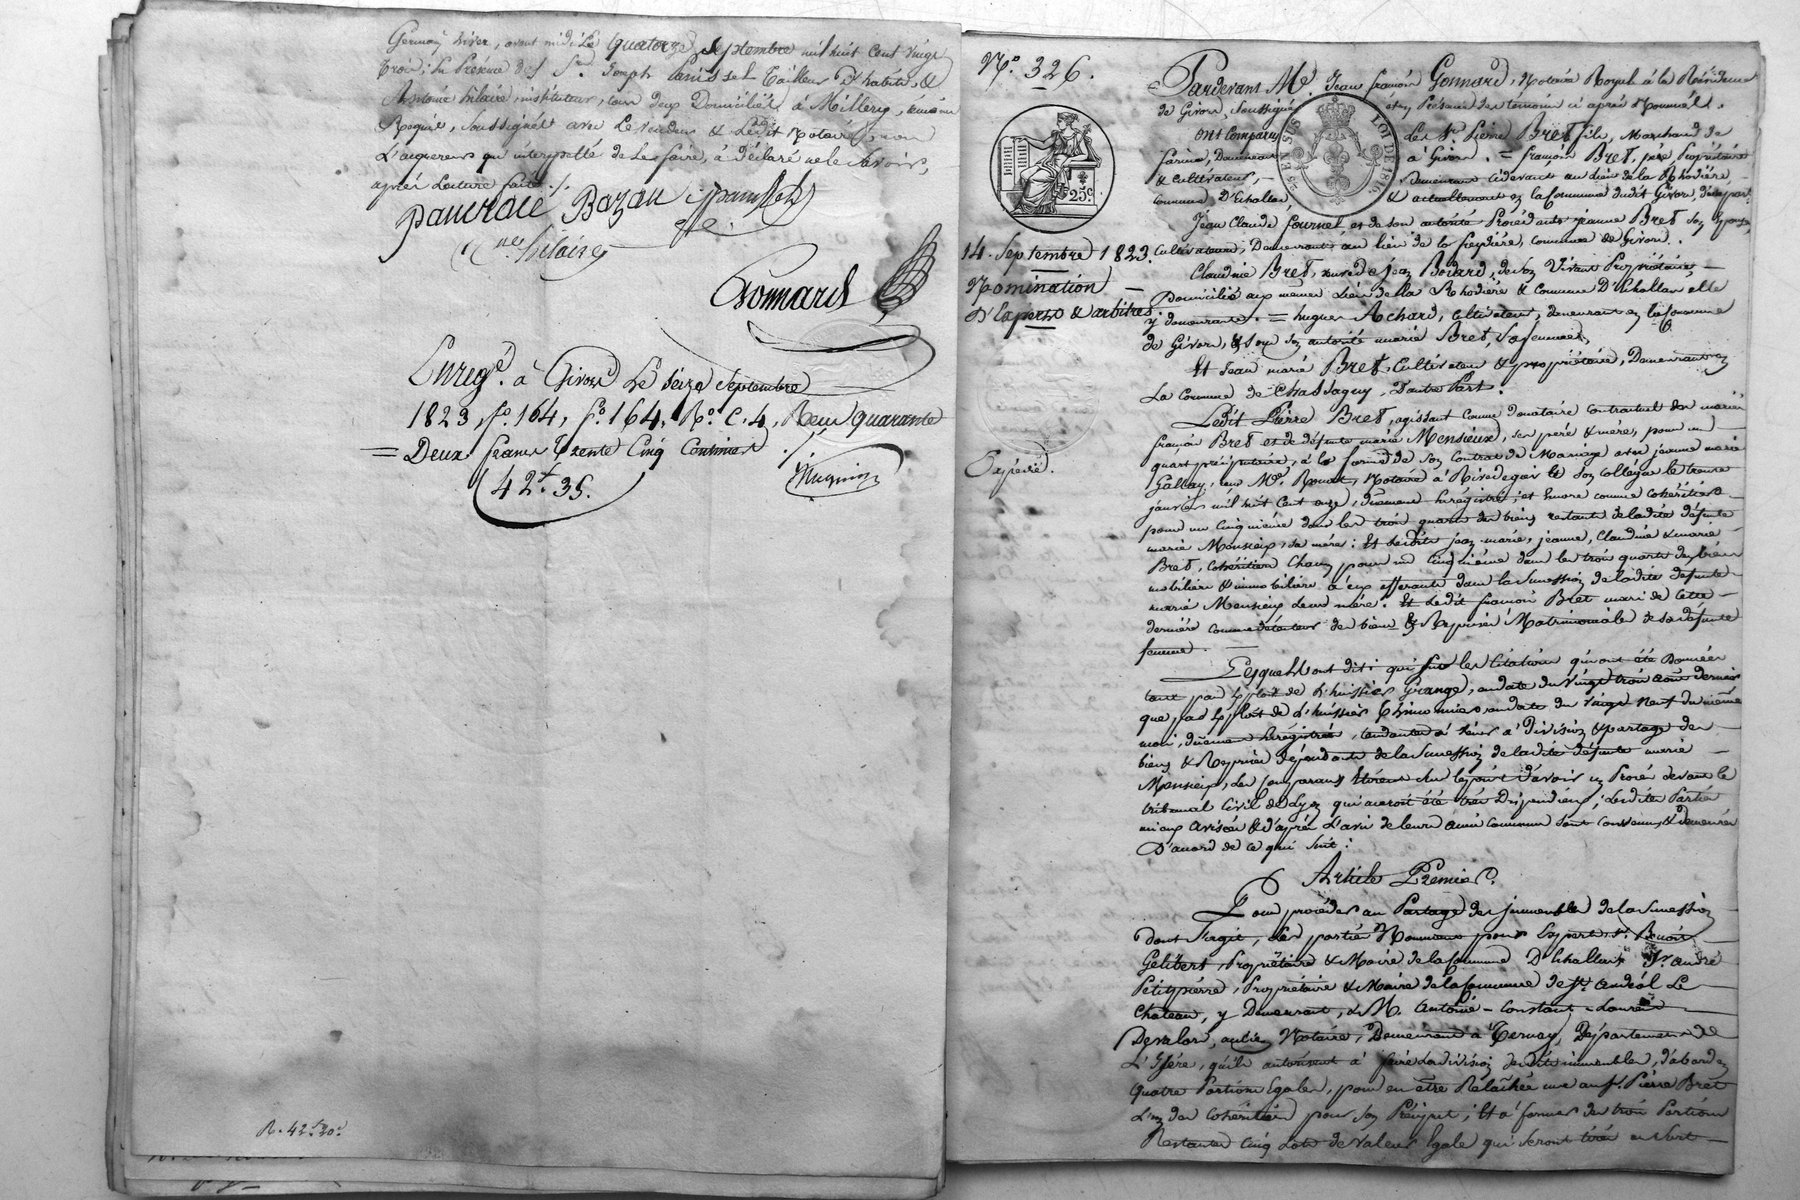 Germain hiver, avant midi Le quatorze Septembre mil huit Cent vingt
trois; En Présence des Srs. Joseph Tailleur D'habits, &
Antoine hilaire, instituteur, tous deux Domiciliés à Millery, témoins
Requis, Soussignés avec Le vendeur & Ledit Notaire, non
L'acquereur qui interpellé de Le faire, a déclaré ne le Savoir,
après Lecture faite ./.
pancrace Bazan
hilaire
Gonnard
Enregé. à Givors Le Seize Septembre
1823, fo. 164, Ro. C. 4, Reçu quarante
= Deux francs Trente Cinq Centimes ./.
42f. 35.
R. 42f.20c.
No. 326.
25c.
LOI DE 1816
14. Septembre 1823.
Nomination
D'Experts & arbitres.
Expédié.
Pardevant Me. Jean françois Gonnard, Notaire Royal à la Résidence
de Givors, Soussigné, et en Présence des témoins ci après Nommés.
Ont Comparu Le Sr. Pierre Bret fils, Marchand de
farine, Demeurant à Givors. = françois Bret, père, Propriétaire
& Cultivateur, Demeurant cidevant au Lieu de la Rhodière
Commune D'Echallas, & actuellement en la Commune dudit Givors, d'une part.
Jean Claude Fournet, et de son autorité Procédant jeanne Bret son épouse,
Cultivateurs, Demeurant au lieu de la freydière, commune de Givors.
Claudine Bret, veuve de jean Bodard, de son Vivant Propriétaire,
Domicilié aux mêmes Lieu de la Rhodière & Commune D'Echallas elle
y demeurante. = hugues Achard, Cultivateur, demeurant en la Commune
de Givors, & Sous son autorité marie Bret, Sa femme,
Et Jean marie Bret, Cultivateur & propriétaire, Demeurant en
La Commune de Chassagny, D'autre Part.
Ledit Pierre Bret, agissant comme donataire contractuel des mariés
françois Bret et de défunte marie Mensieux, ses père & mère, pour un
quart préciputaire, à la forme de Son Contrat de Mariage avec jeanne marie
Notaire à Rivedegier & Son collègue le trente
janvier mil huit Cent onze, dûement Enregistré; et Encore comme cohéritier
pour un Cinquième dans les trois quarts des biens restants de ladite défunte
marie Mensieux, sa mère: Et Lesdits jean marie, jeanne, Claudine & marie
Bret, Cohéritiers Chacun pour un Cinquième dans les trois quarts des biens
mobiliers & immobiliers à eux afférants dans la Succession de ladite défunte
marie Mensieux Leur mère. Et Ledit françois Bret mari de cette
dernière comme détenteur des biens & Reprises Matrimoniales de sa défunte
femme.
Lesquels ont dit: que sur les Citations qui ont été Données
tant par Exploit de L'huissier Grange, en date du vingt trois août dernier
que par Exploit de L'huissier en date du vingt neuf du même
mois, dûement Enregistrés, tendantes à Venir à Division & partage des
biens & Reprises dépendants de la Succession de ladite défunte marie
Mensieux, Les Comparants étoient Sur le point d'avoir un Procès devant le
tribunal Civil de Lyon qui auroit été très Dispendieux; Lesdites Parties
mieux avisées & d'après L'avis de leurs amis communs sont convenus & demeurés
D'accord de ce qui Suit:
Article Premier.
Pour procéder au Partage des immeubles de la Succession
dont S'agit, Les parties Nomment pour Experts, Sr. Benoit
Gélibert, Propriétaire & Maire de la Commune D'Echallas, Sr. andré
Petitpierre, Propriétaire & Maire de la Commune de St. andéol Le
Chateau, y Demeurant, & M. Antoine Constant Laurent
Devalors, ancien Notaire, Demeurant à Ternay, Département de
L'Isère, qu'ils autorisent à faire La division desdits immeubles, d'abord en
Quatre Portions Egales, pour en être Relâchée une au Sr. Pierre Bret
L'un des Cohéritiers pour Son Préciput; Et à former des trois Portions
Restantes Cinq Lots de Valeur Egale qui Seront tirés au Sort